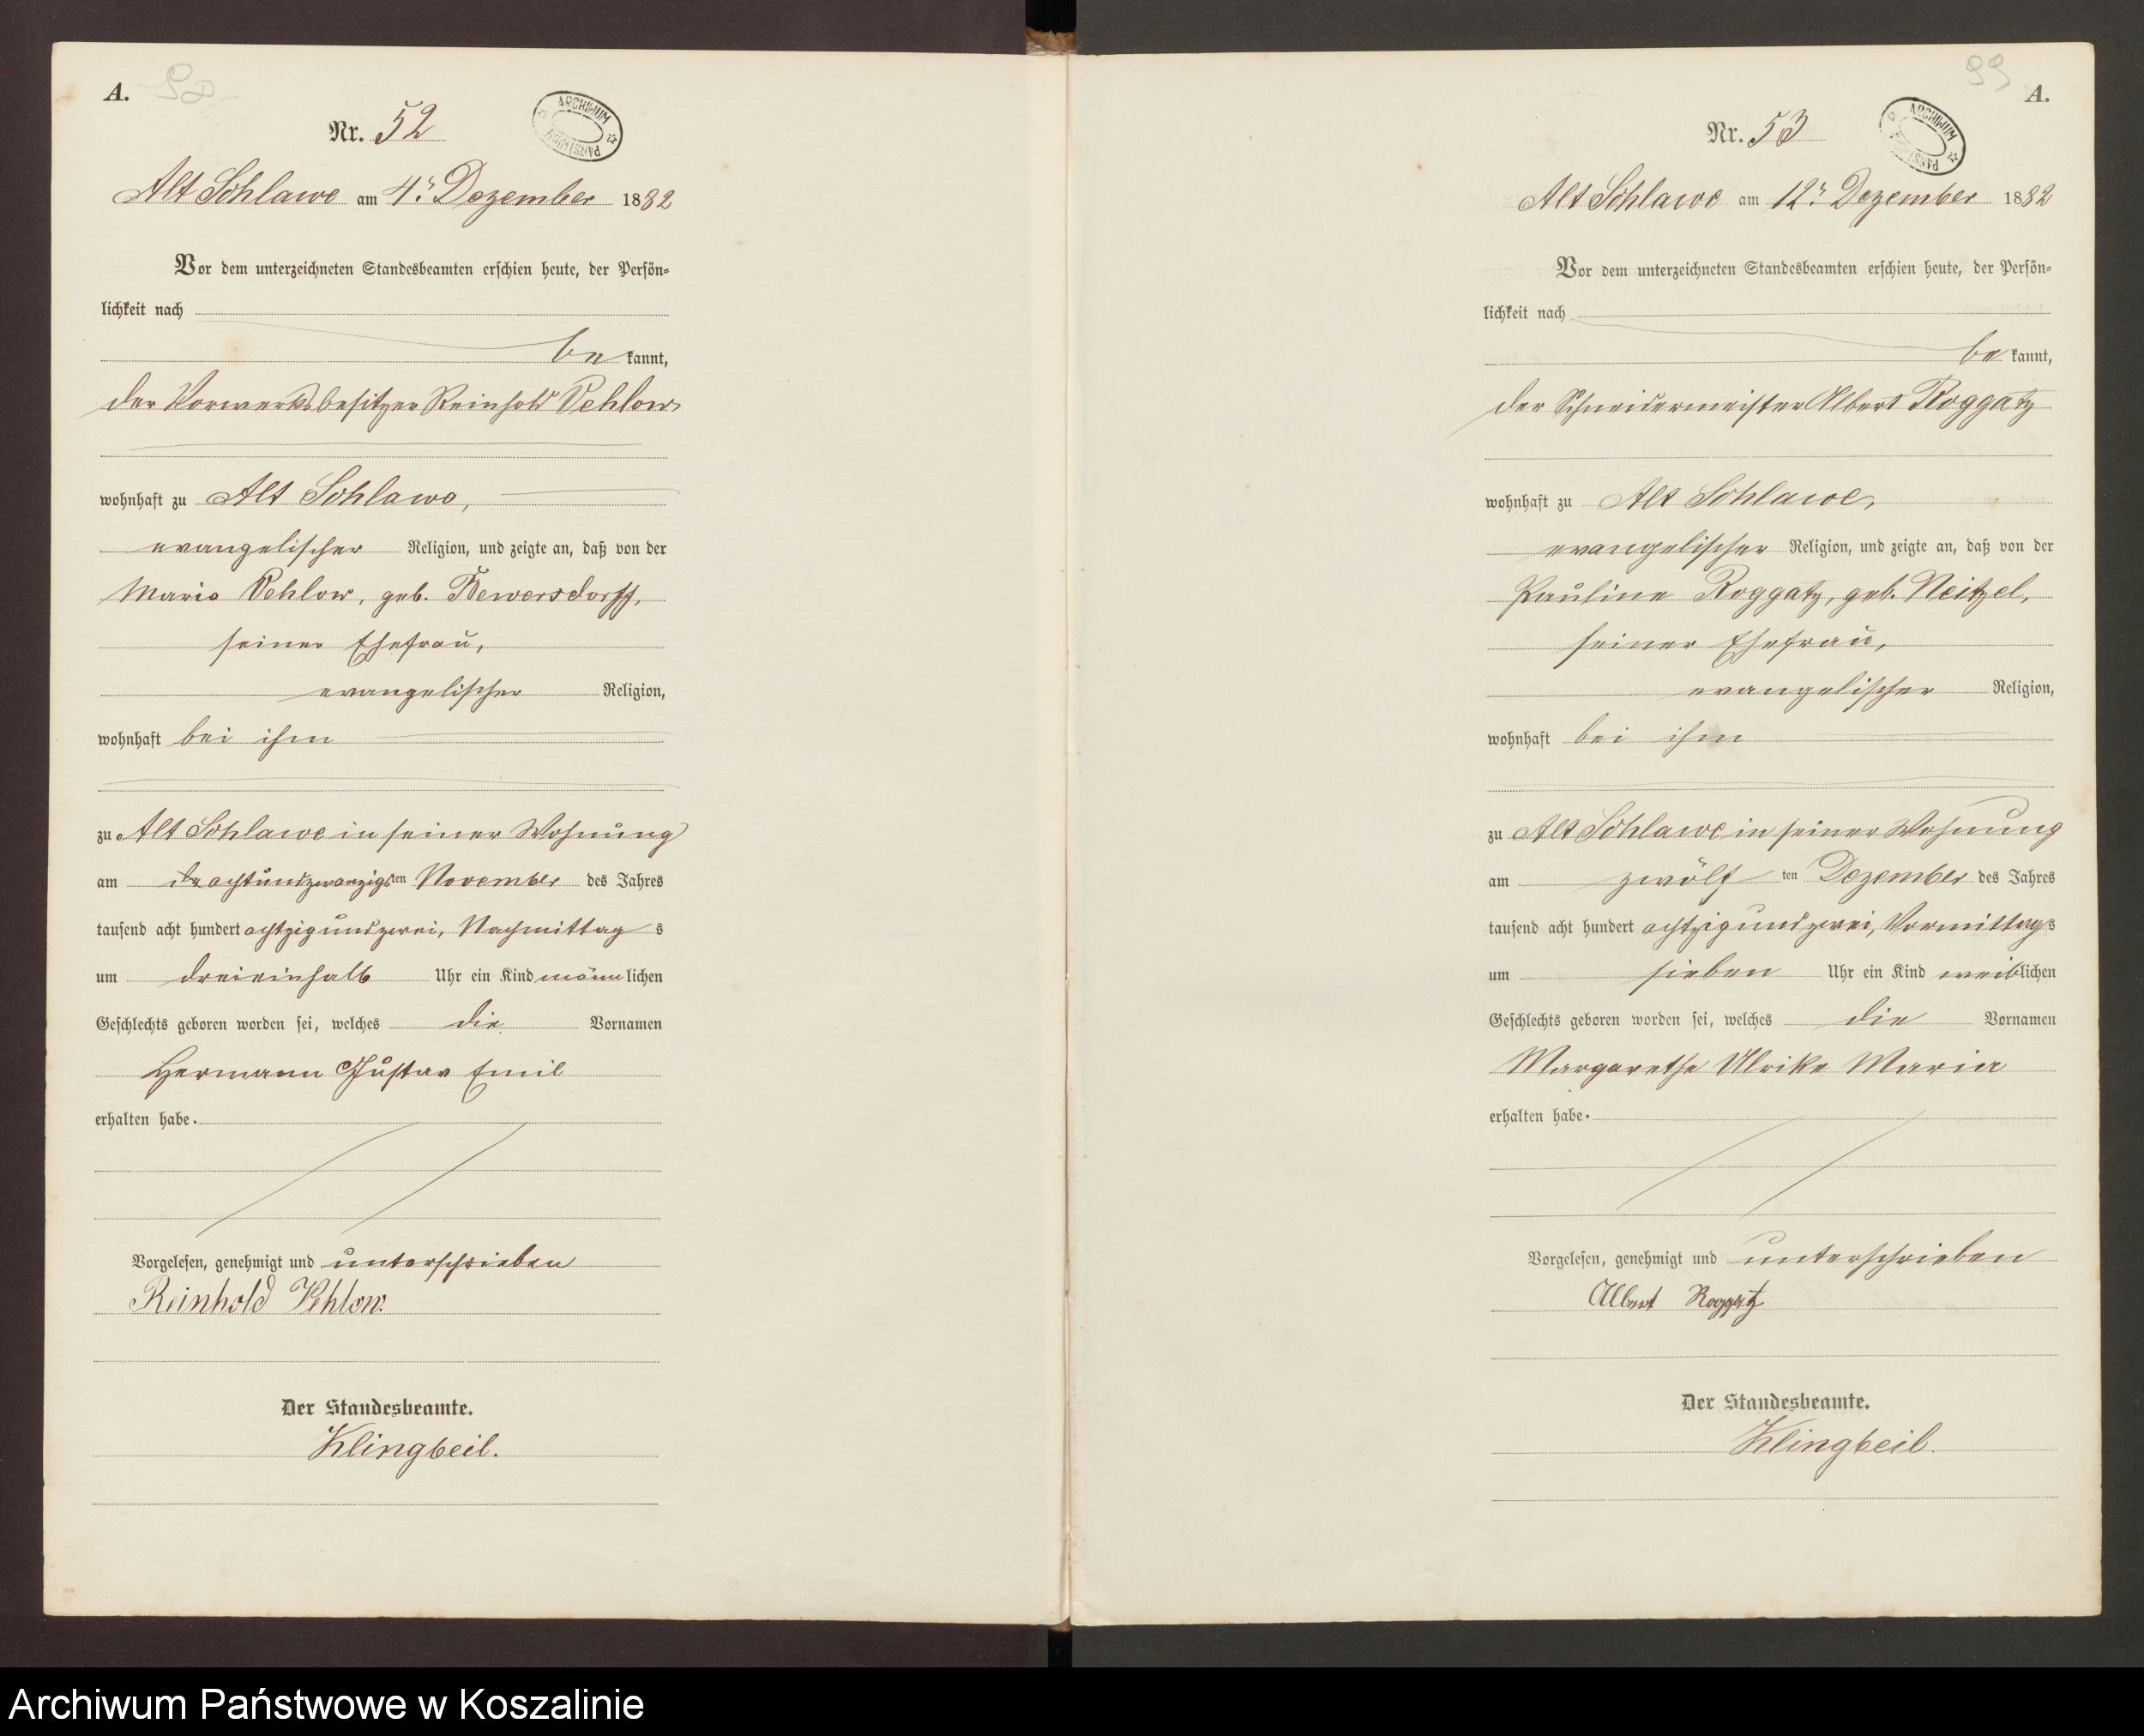 A.
Nr. 52
ARCHIWUM PAŃSTWOWE
Alt Schlawe am 4ᵗ. Dezember 1882
Vor dem unterzeichneten Standesbeamten erschien heute, der Persön=
lichkeit nach
be kannt,
der Vorwerksbesitzer Reinhold Vehlow,
wohnhaft zu Alt Schlawe,
evangelischer Religion, und zeigte an, daß von der
Marie Vehlow, geb. Bewersdorff,
seiner Ehefrau,
evangelischer Religion,
wohnhaft bei ihm
zu Alt Schlawe in seiner Wohnung
am achtundzwanzigsten November des Jahres
tausend acht hundert achtzigundzwei, Nachmittag s
um dreieinhalb Uhr ein Kind männlichen
Geschlechts geboren worden sei, welches die Vornamen
Hermann Gustav Emil
erhalten habe.
Vorgelesen, genehmigt und unterschrieben
Reinhold Vehlow.
Der Standesbeamte.
Klingbeil.
99
A.
Nr. 53
ARCHIWUM PAŃSTWOWE
Alt Schlawe am 12ᵗ. Dezember 1882
Vor dem unterzeichneten Standesbeamten erschien heute, der Persön=
lichkeit nach
be kannt,
der Schneidermeister Albert Roggatz
wohnhaft zu Alt Schlawe,
evangelischer Religion, und zeigte an, daß von der
Pauline Roggatz, geb. Neitzel,
seiner Ehefrau,
evangelischer Religion,
wohnhaft bei ihm
zu Alt Schlawe in seiner Wohnung
am zwölf ten Dezember des Jahres
tausend acht hundert achtzigundzwei, Vormittags
um sieben Uhr ein Kind weiblichen
Geschlechts geboren worden sei, welches die Vornamen
Margarethe Ulrike Maria
erhalten habe.
Vorgelesen, genehmigt und unterschrieben
Albert Roggatz
Der Standesbeamte.
Klingbeil.
Archiwum Państwowe w Koszalinie